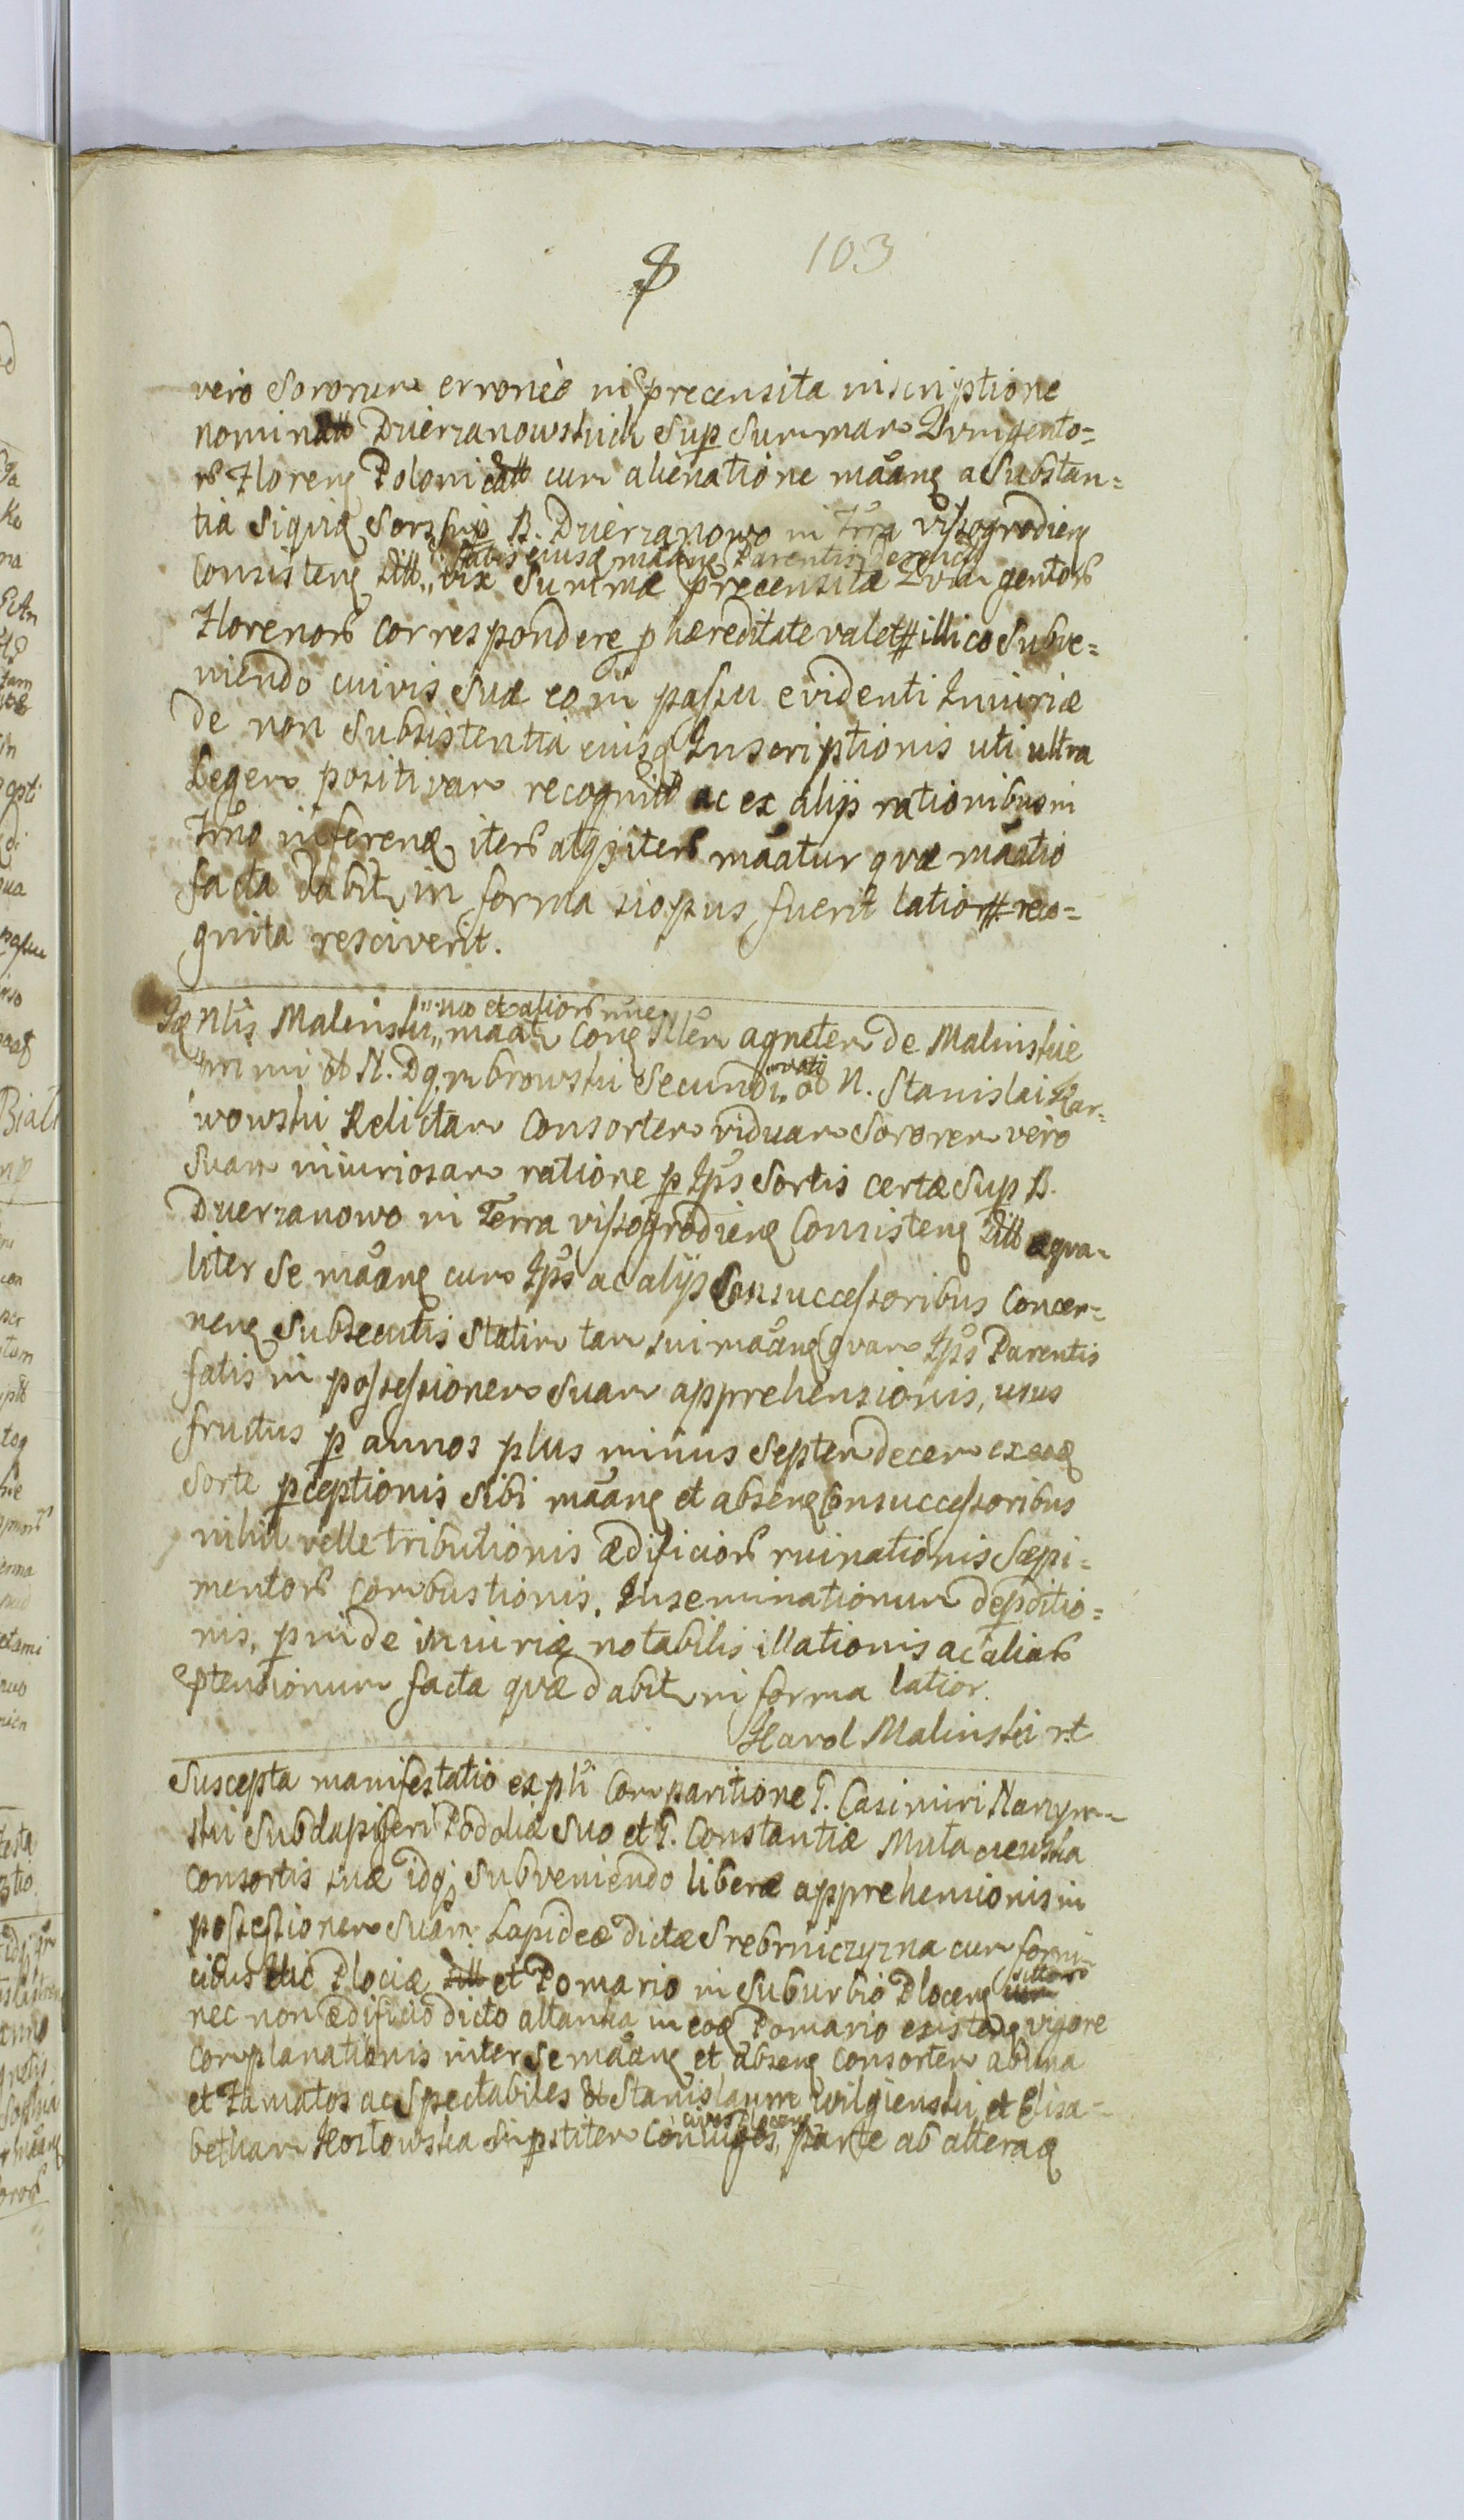 8 103
vero Sororum erroneè in precensita inscriptione
nominat Dzierzanowskich Sup Summam Quingento=
rū Florenq Polonicat cum alienatione mãanq a Substan=
tia Siquiq Sors B. Dzierzanowo in Trra vissogrodienq
fatis eiusq mãanq Parentis
Consistenq sitt vix Summæ precensitæ Quingentorū
Florenorū correspondere p hæreditate valet illico Subve=
niendo cuivis Suæ eo in passu evidenti Iniuriæ
de non Subsistentia eiusq Inscriptionis uti ultra
Legem positivam recognit ac ex alijs rationibus in
Trno inferenq iterū atq iterū mãatur quæ mãatio
facta dabit in forma si opus fuerit latio reco=
gnita resciverit.
Idq Nlis Malinski suo et aliorū nõe mãat Conq Nlem agnetem de Malinskie
primi et N. Dąmbrowski Secundi vati ob N. Stanislai Kar=
wowski Relictam Consortem viduam Sororem vero
Suam iniuriosam ratione p Ips Sortis certæ Sup B.
Dzierzanowo in Terra vissogrodienq Consistenq sitt æqua=
liter Se mãanq cum Ips ac alijs Consuccessoribus Concer=
nenq Subsecutis Statim tam sui mãanq quam Ips Parentis
fatis in possessionem Suam apprehensionis, usus
fructus p annos plus minus Septemdecem ex eaq
Sorte pceptionis Sibi mãanq et absenq Consuccessoribus
nihil velle tributionis ædificiorū ruinationis Sæpi=
mentorū combustionis, Inseminationum depditio=
nis, pinde iniuriæ notabilis illationis ac aliarū
ptensionum facta quæ dabit in forma latior.
Karol Malinski rt
Suscepta manifestatio ex pli Comparitione G. Casimiri Narzym=
ski Subdapiferi Podoliæ Suo et G. Constantiæ
Consortis suæ idq Subveniendo liberæ apprehensionis in
possessionem Suam Lapideæ dictæ Srebrniczyzna cum forni=
cibus Hic Plociæ sitt et Pomario in Suburbio Plocenq sitto
nec non ædificio dicto altanka in eoq Pomario existenq vigore
Complanationis inter Se mãanq et absenq Consortem ab una
et Famatos ac Spectabiles Stanislaum Wilgienski et Elisa=
cives Plocenq
betham Kozłowska Supstitem Coniuges, parte ab alteraq